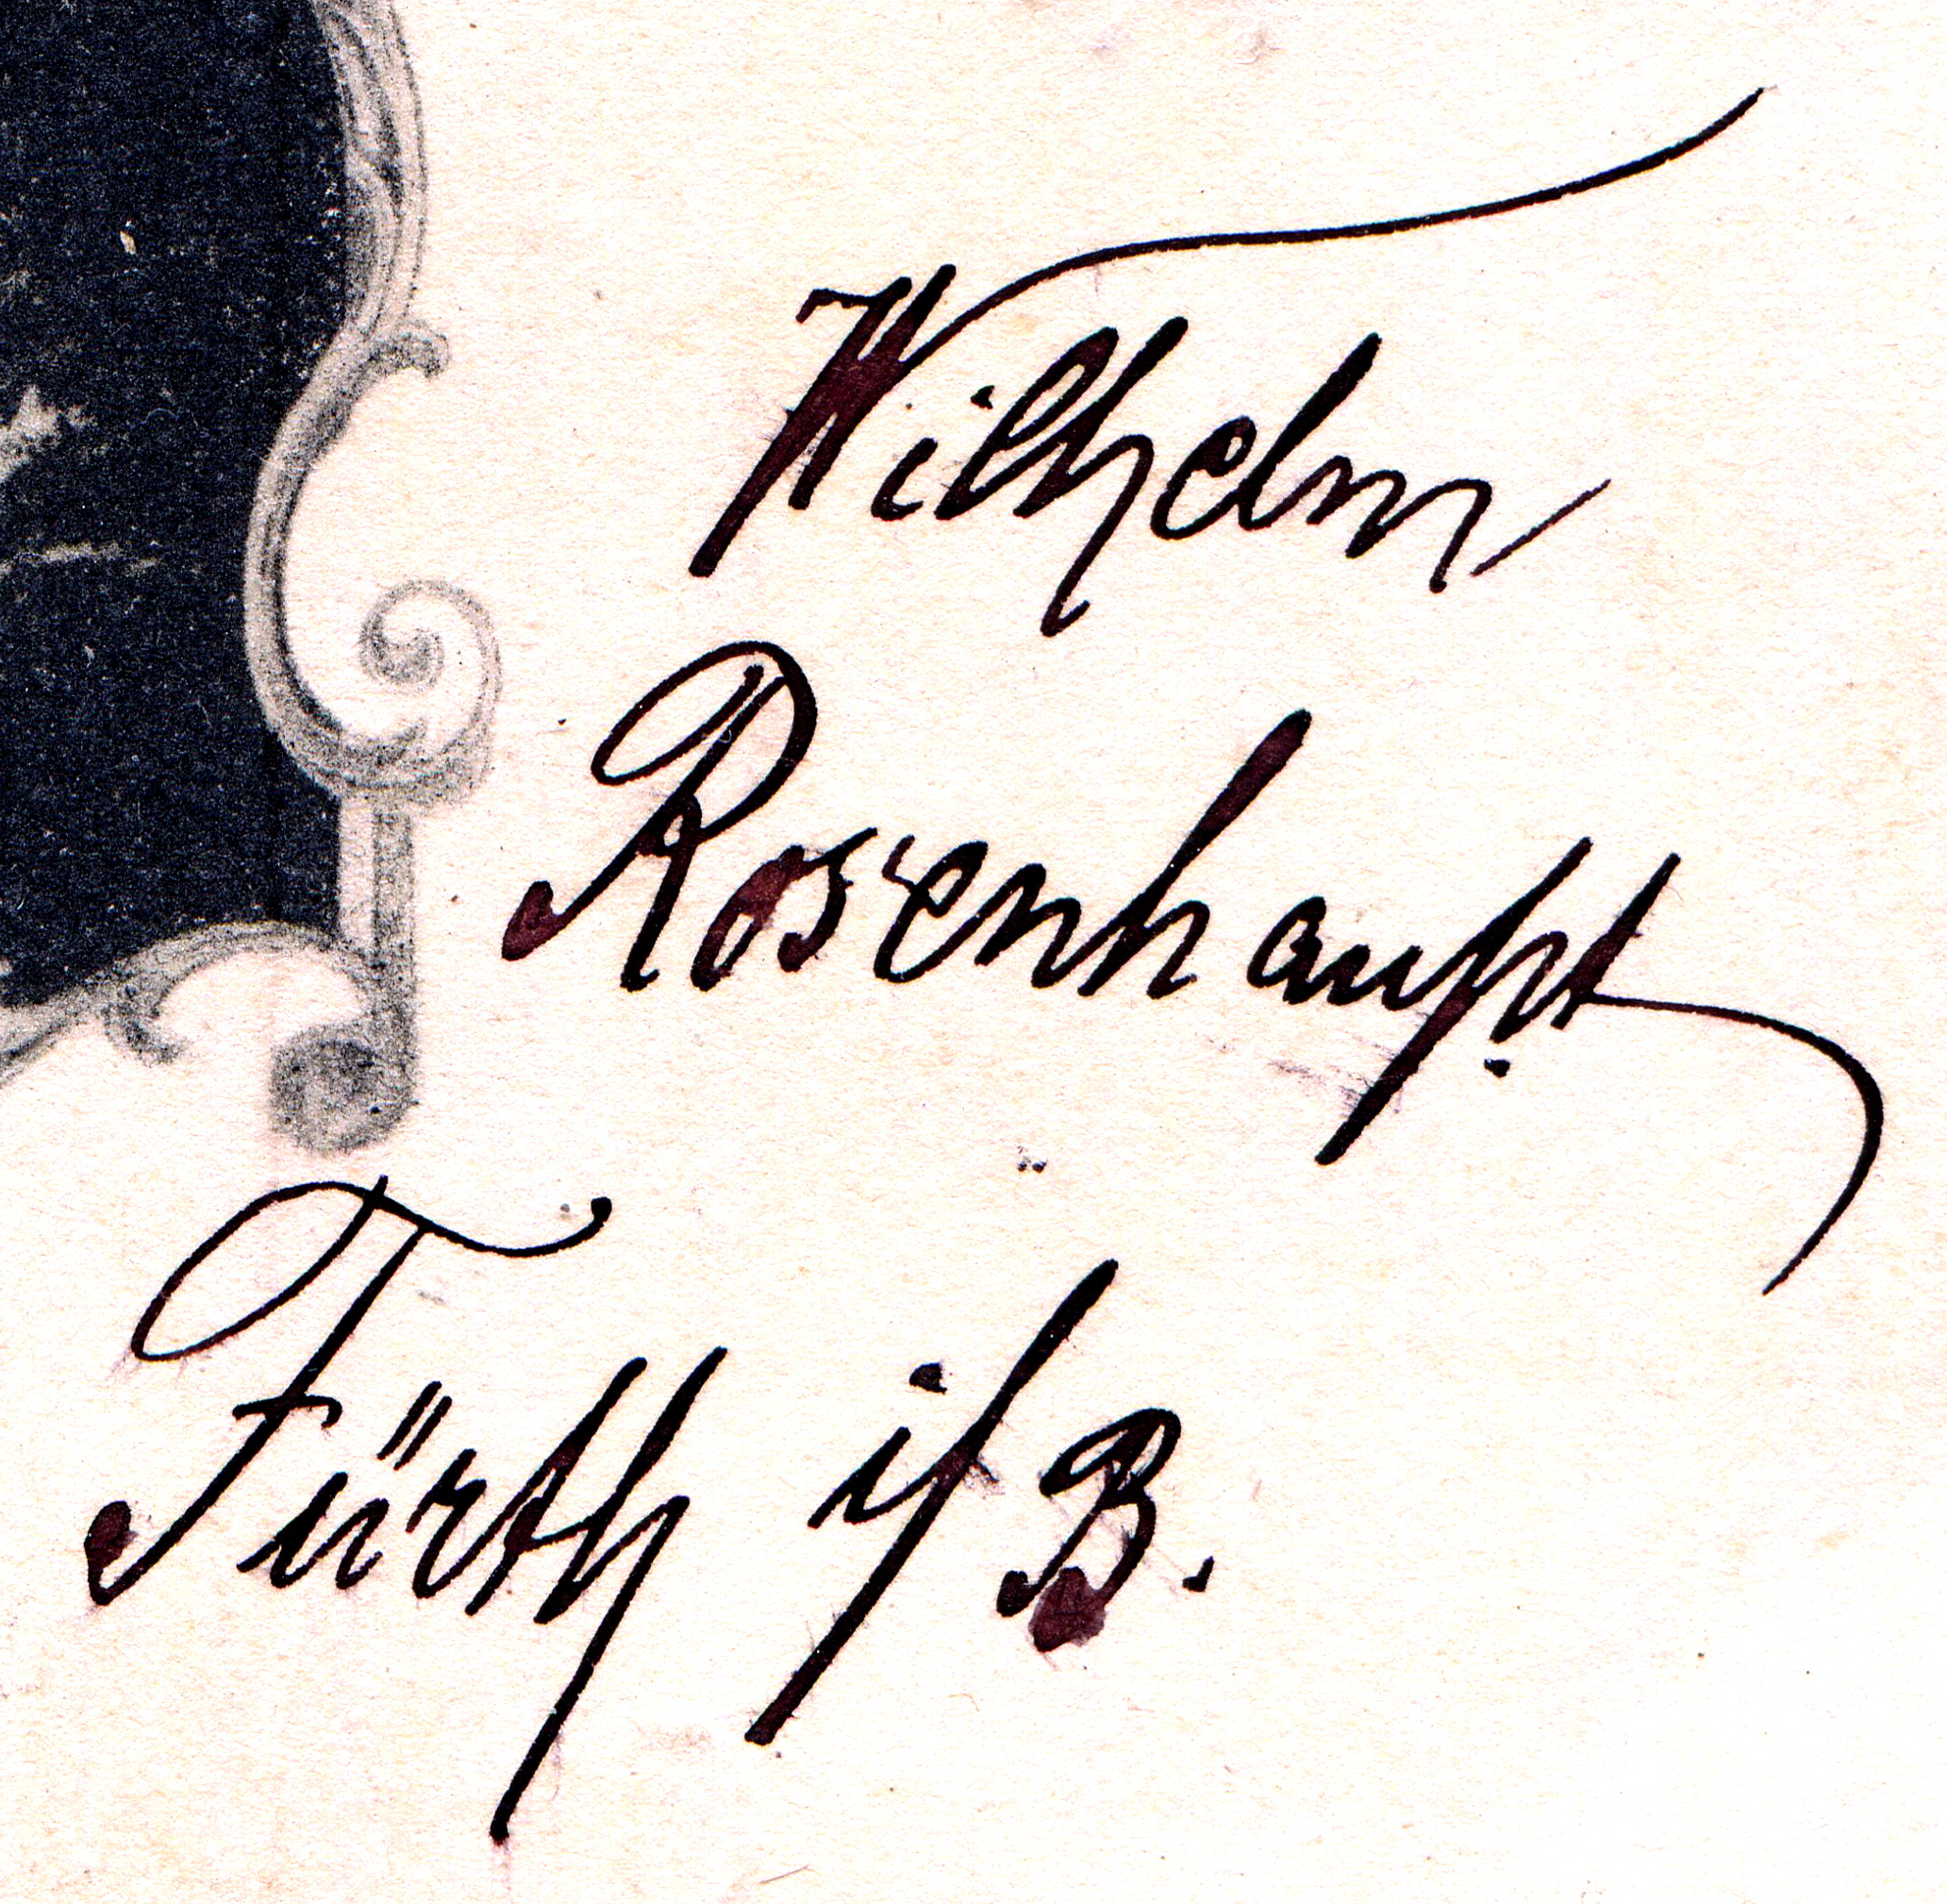 Wilhelm
Rosenhaupt
Fürth i/B.